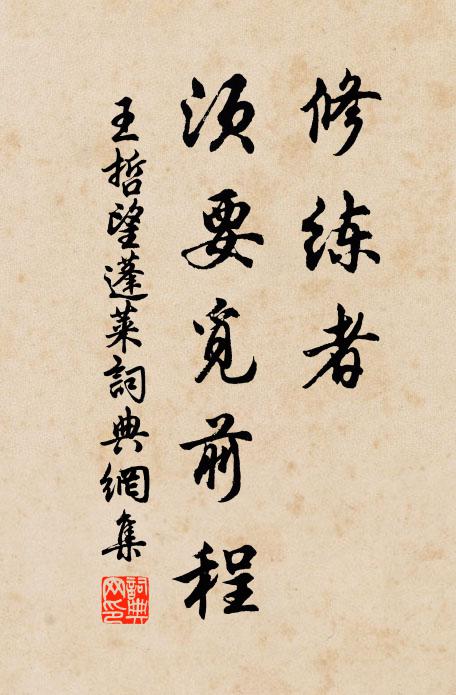 修练者
须要觅前程
王哲望蓬莱詞典網集
詞典網印